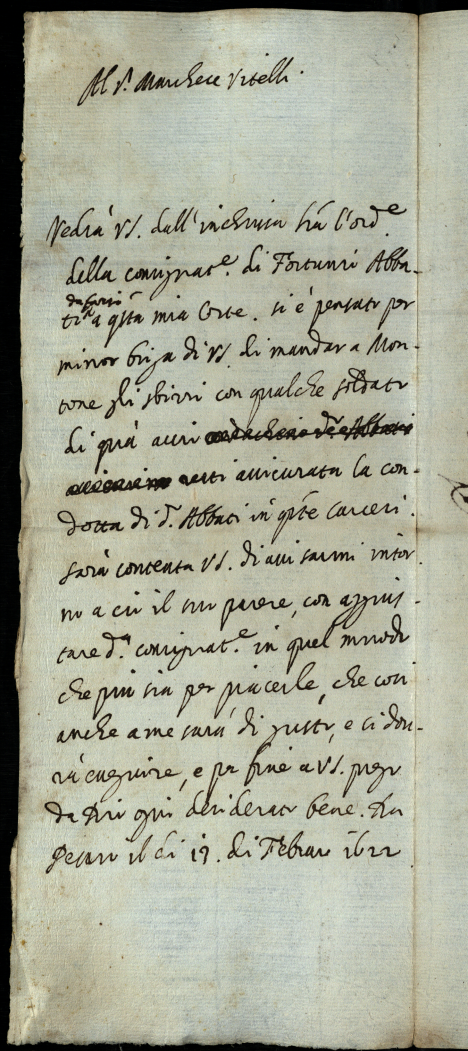 Al S.r Marchese Vitelli.
Vedrà VS. dall'inchiusa Hra l'ord.e
della consignat.e di Fortunio Abba-
da farsi
ti a q.sta mia Corte. si è pensato per
minor briga di VS. di mandar a Mon-
tone gli sbirri con qualche soldato
di quà acciò
resti assicurata la con-
dotta di d.o Abbati in q.ste carceri.
sarà contenta VS. di avisarmi intor-
no a ciò il suo parere, con aggius-
tare d.a consignat.e in quel mo do
che più sia per piacerle, che così
anche a me sarà di gusto, e si dov-
rà eseguire, e per fine a VS. prego
da Dio ogni desiderato bene. Da
Pesaro il di 19. di Febraro 1622